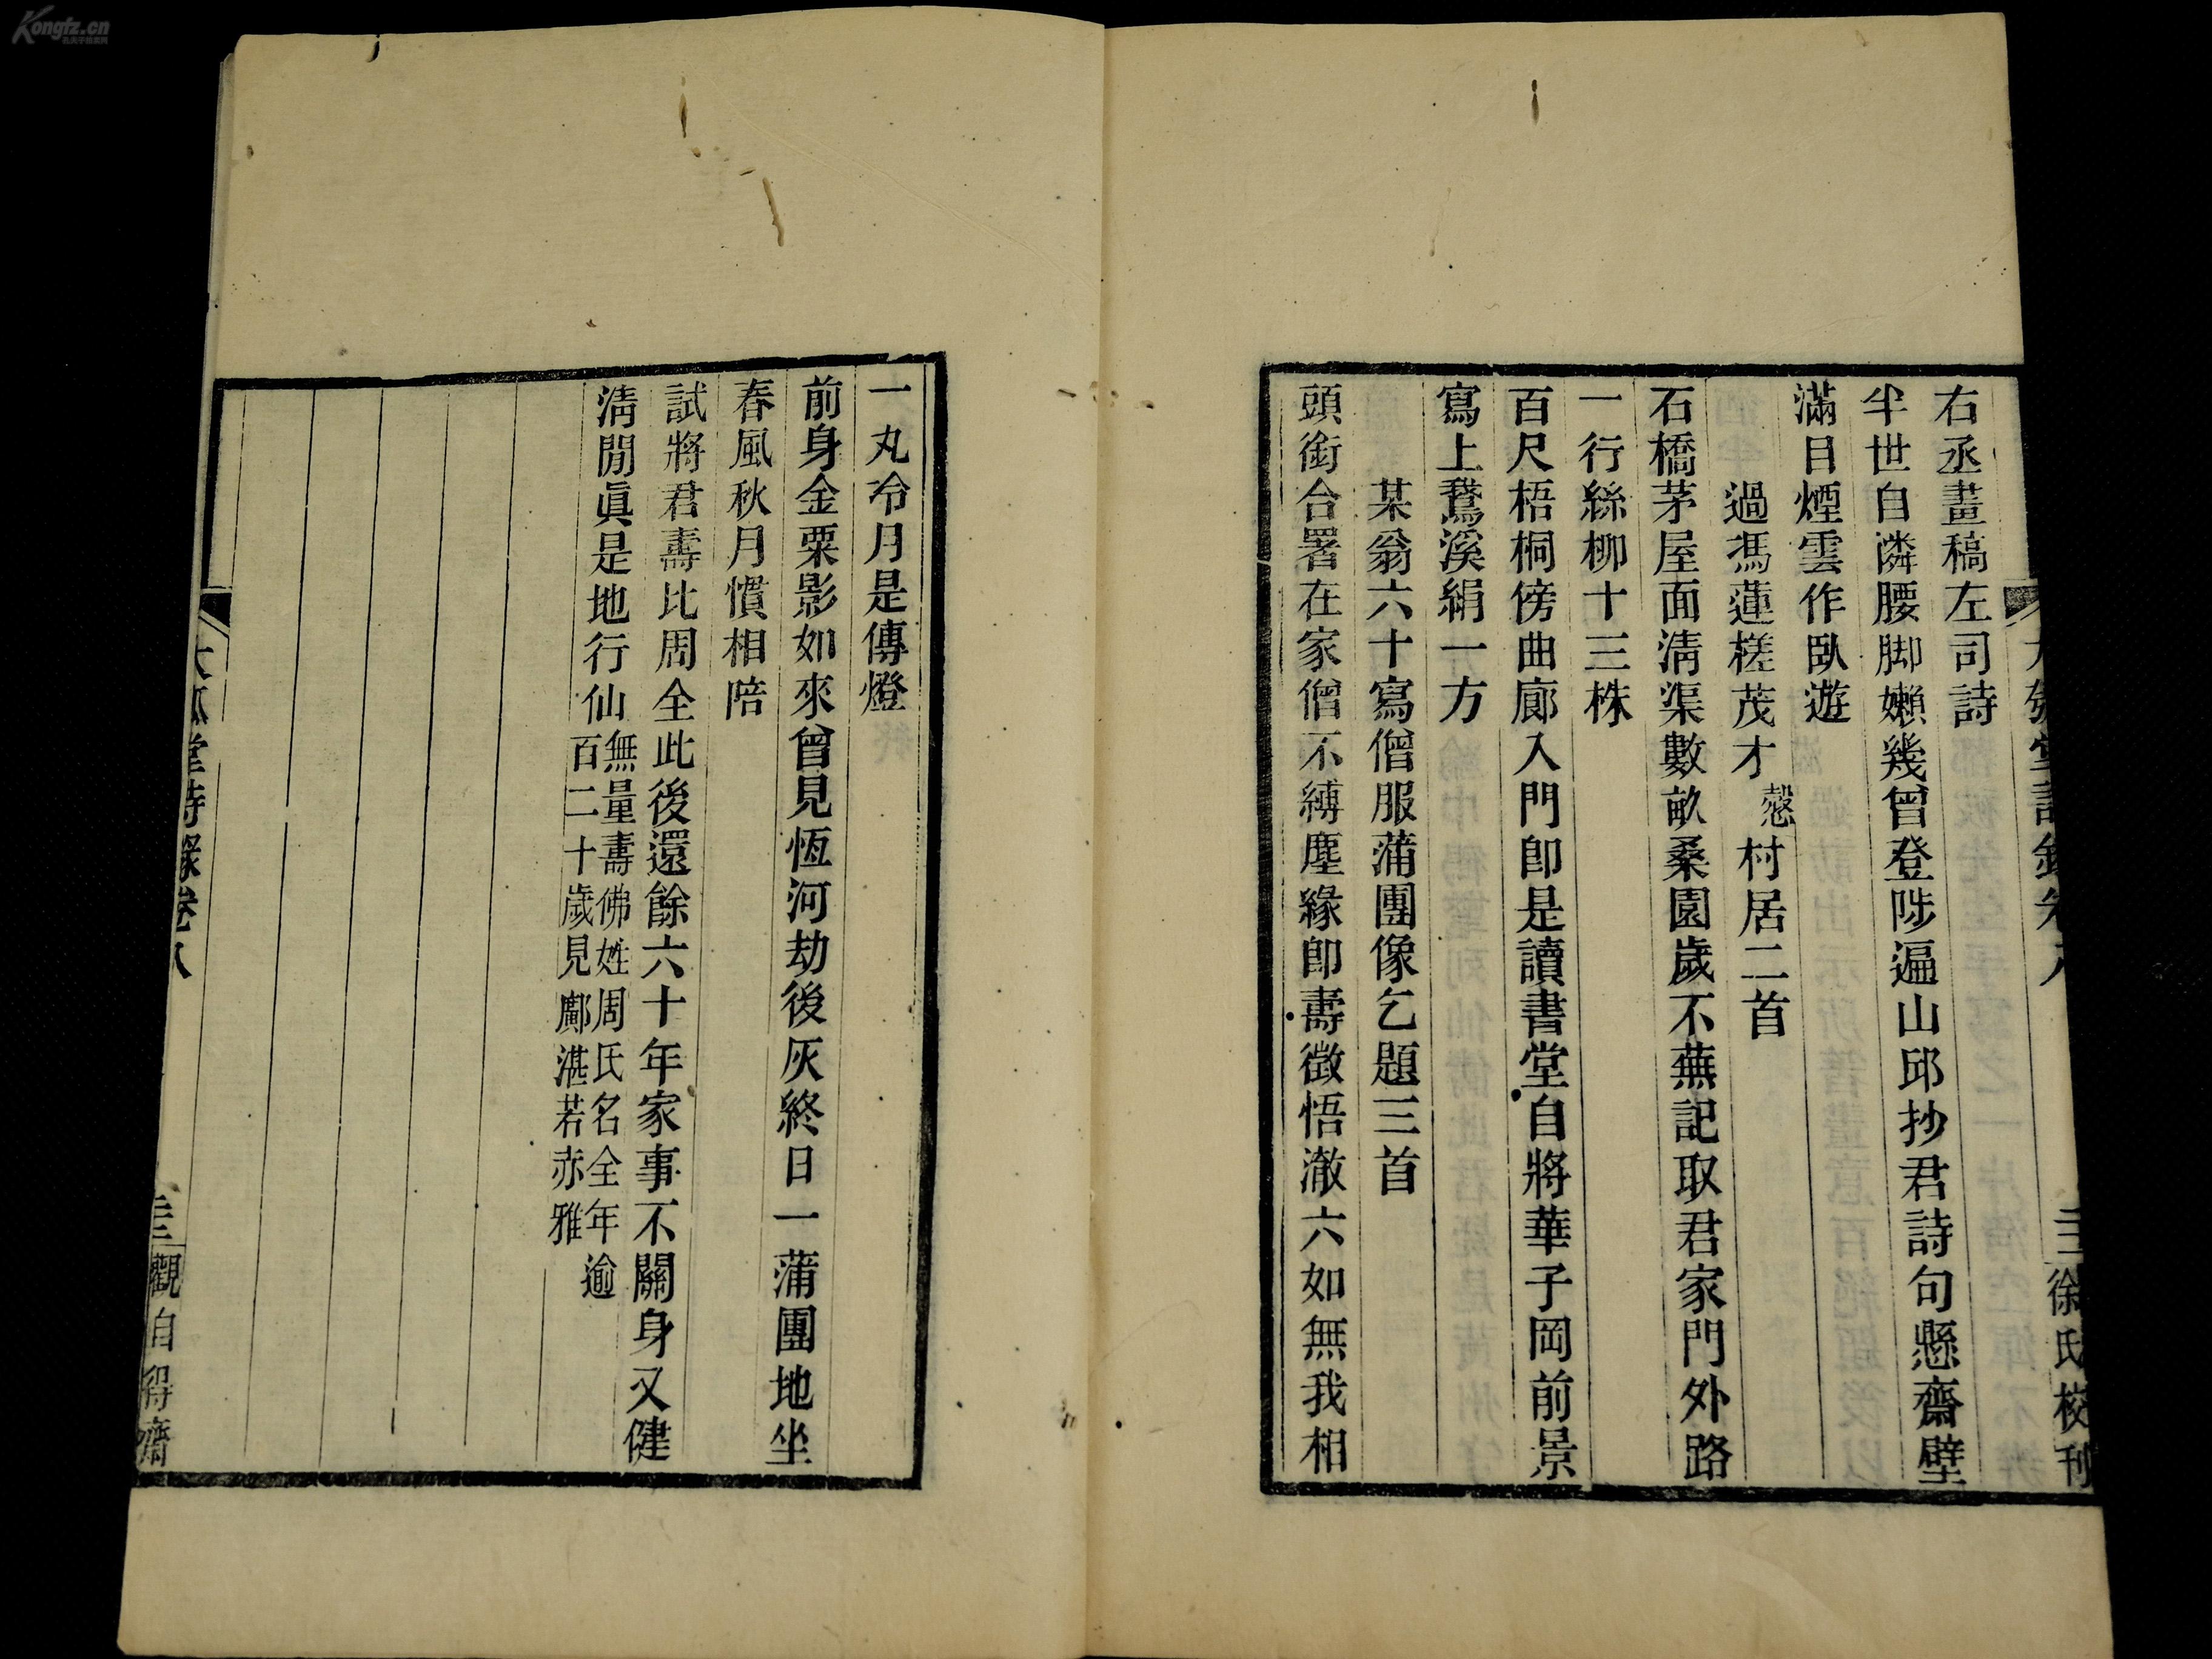 右丞畫稿左司詩
半世自憐腰脚嬾幾曾登陟遍山邱抄君詩句懸齋壁
滿目煙雲作臥遊
過馮蓮槎茂才慤村居二首
石橋茅屋面淸渠數畝桑園歲不蕪記取君家門外路
一行絲柳十三株
百尺梧桐傍曲廊入門卽是讀書堂自將華子岡前景
寫上鵞溪絹一方
某翁六十寫僧服蒲團像乞題三首
頭銜合署在家僧不縛塵緣卽壽徵悟澈六如無我相
徐氏校刊
一丸冷月是傳燈
前身金粟影如來曾見恆河劫後灰終日一蒲團地坐
春風秋月慣相陪
試將君壽比周全此後還餘六十年家事不關身又健
淸閒眞是地行仙無量壽佛姓周氏名全年逾
百二十歲見鄺湛若赤雅
堂詩錄卷八
觀自得齋
Kongfz.cn